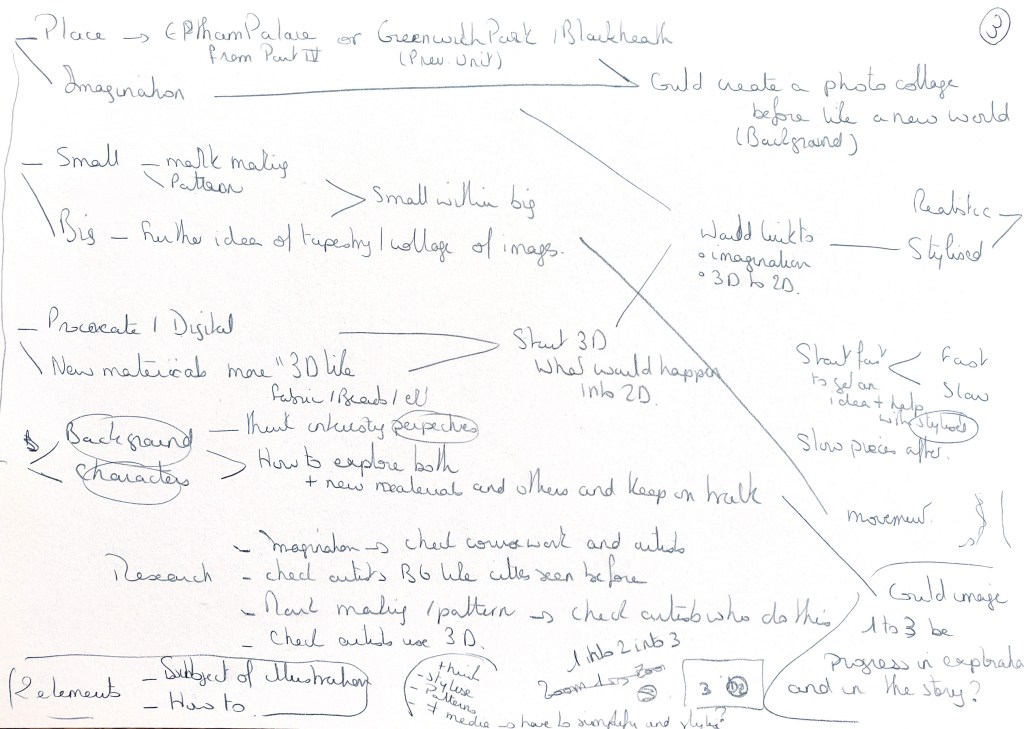 3
Place → Eltham Palace or Greenwich Park / Blackheath
from Part IV (Prev. Unit)
Imagination
Could create a photo collage
before like a new world
(Background)
Small - mark making
Pattern
Small within big
Big - further idea of tapestry / collage of images.
Realistic
Would link to
• imagination
• 3D to 2D.
Stylised
Procreate / Digital
New materials more "3D like
Fabric / Beads / etc
Start 3D
What would happen
into 2D.
Start fast
to get an
idea + help
with stylised
Fast
Slow
Slow pieces after.
Background - think interesting perspectives
Characters
How to explore both
+ new material and others and keep on track
movement.
Research
- Imagination → check coursework and artists
- check artists BG like cities seen before
- Mark making / pattern → check artists who do this
- Check artists use 3D.
Could image
1 to 3 be
Progress in exploration
and in the story?
2 elements - Subject of Illustration
- How to.
think
- stylise
- Patterns
- + media → have to simplify and
1 into 2 into 3
Zoom
3